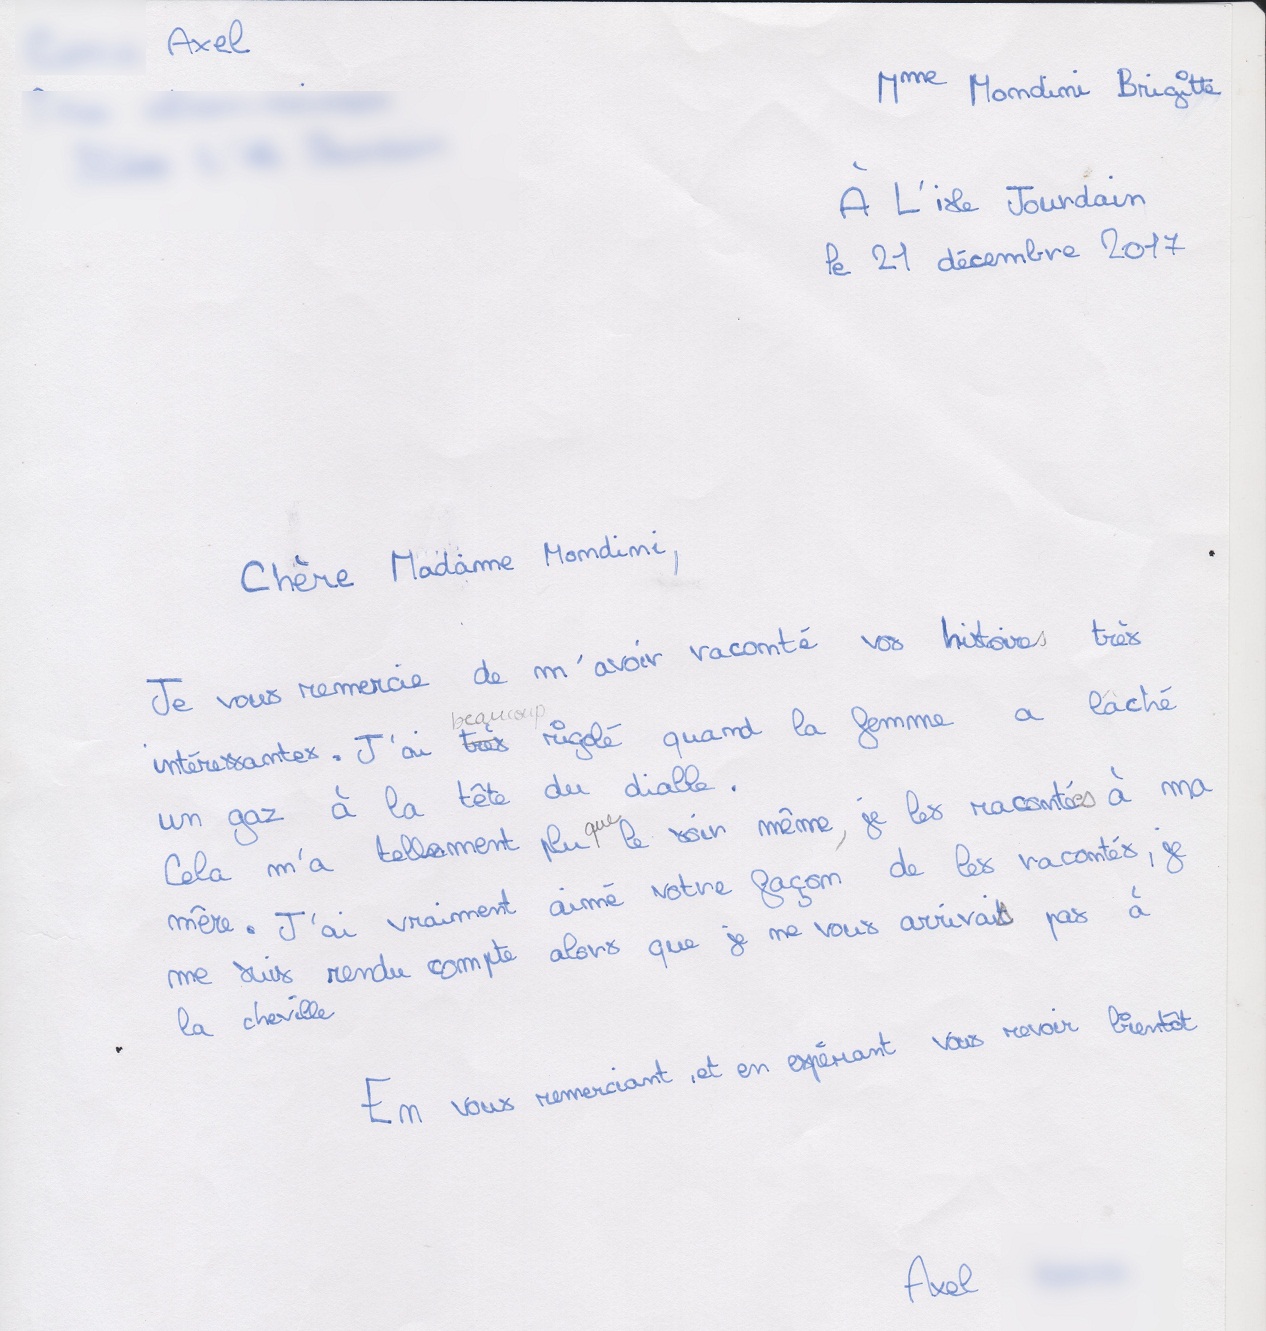 Axel
Mme Mondini Brigitte
À L'isle Jourdain
le 21 décembre 2017
Chère Madame Mondini,
Je vous remercie de m'avoir raconté vos histoires très
beaucoup
intéressantes. J'ai très rigolé quand la femme a lâché
un gaz à la tête du dialle.
Cela m'a tellement plu que le soir même, je les racontés à ma
mère. J'ai vraiment aimé votre façon de les racontés, je
me suis rendu compte alors que je ne vous arrivais pas à
la cheville
En vous remerciant, et en espériant vous revoir bientôt
Axel